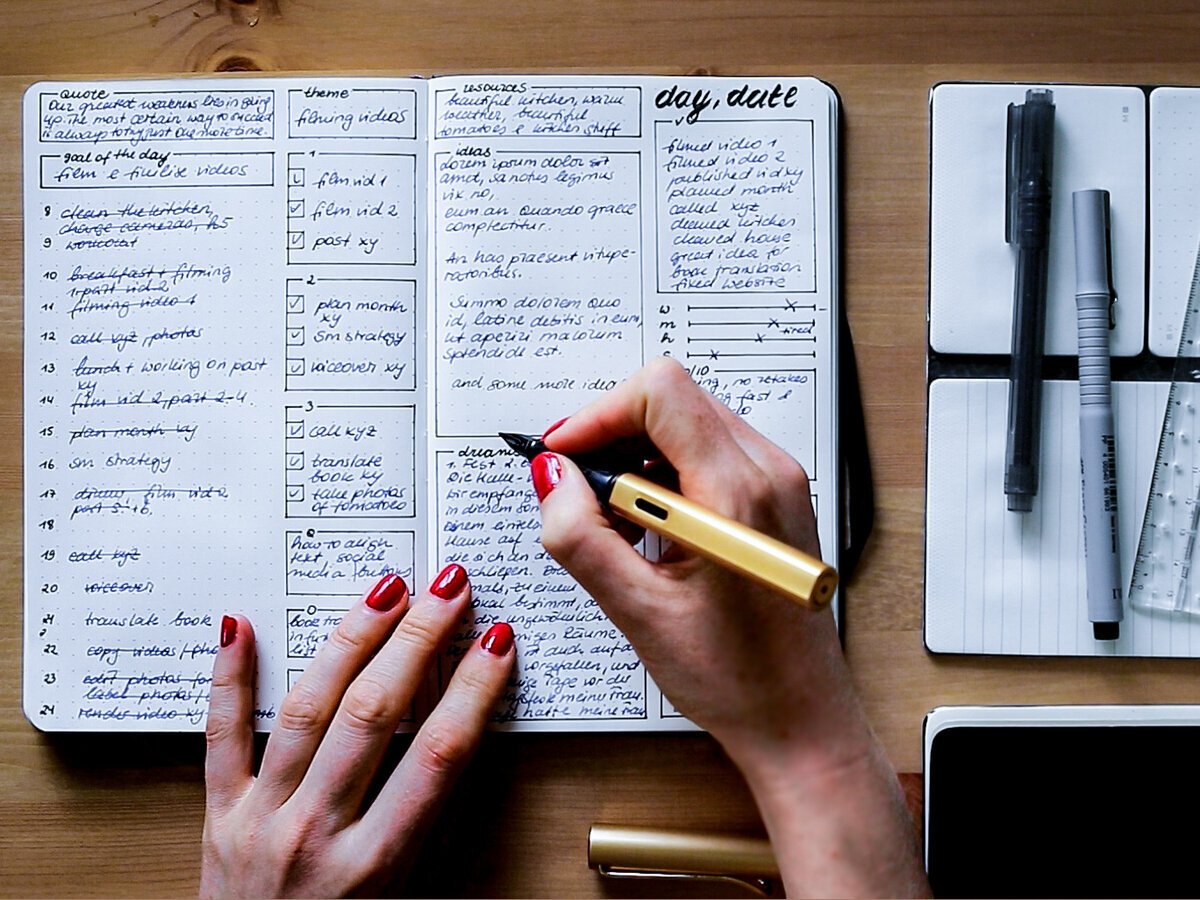 quote
Our greatest weakness lies in giving
up. The most certain way to succeed
is always to try just one more time.
goal of the day
film e finilise videos
8 clean the kitchen,
charge cameras, h5
9 workout
10 breakfast + filming
1 part vid 2
11 filming video 1
12 call xyz, photos
13 lunch + working on post
xy
14 film vid 2, part 2-4
15 plan month xy
16 sm strategy
17 film vid 2
part 5.+6.
18
19 call xyz
20 voiceover
21 translate book
22 copy videos /
23 edit photos for
label photos/
24 render video xy
theme
filming videos
1
film vid 1
film vid 2
post xy
2
plan month
xy
sm strategy
voiceover xy
3
call xyz
translate
book xy
take photos
of tomatoes
how to align
text social
media buttons
list
resources
beautiful kitchen, warm
weather, beautiful
tomatoes e kitchen stuff
ideas
dorem ipsum dolor sit
amet, sa notus legimus
vix no,
eum an quando graece
complectitur.
An has praesent vitupe-
ratoribus.
Summo dolorem quo
id, latine debitis in eum,
ut aperiri malorum
splendide est.
and some more idea
dreams
1. Fest 2.
Die Halle
bir empfange
in diesem
einem
Hause auf
die sich an
schliepen.
mals, zu einem
bestimmt, da
die ungewöhnlich
Räume.
ist auch auf
vorgefallen, und
Tage vor die
meine Frau.
hatte meine Frau
day, date
filmed video 1
filmed video 2
published vid xy
planned month
called xyz
cleaned kitchen
cleaned house
great idea for
book translation
fixed website
w
m
tired
h
s
/10
ing, no retakes
ng fast e